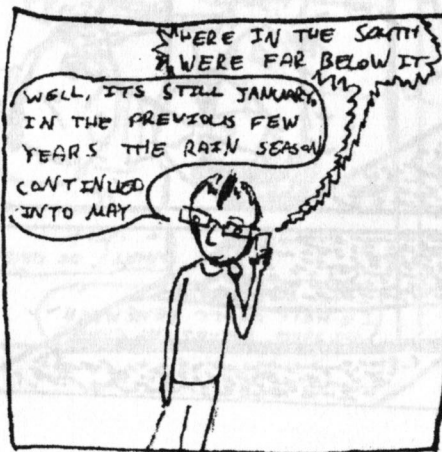 HERE IN THE SOUTH
WERE FAR BELOW IT
WELL, ITS STILL JANUARY,
IN THE PREVIOUS FEW
YEARS THE RAIN SEASON
CONTINUED
INTO MAY